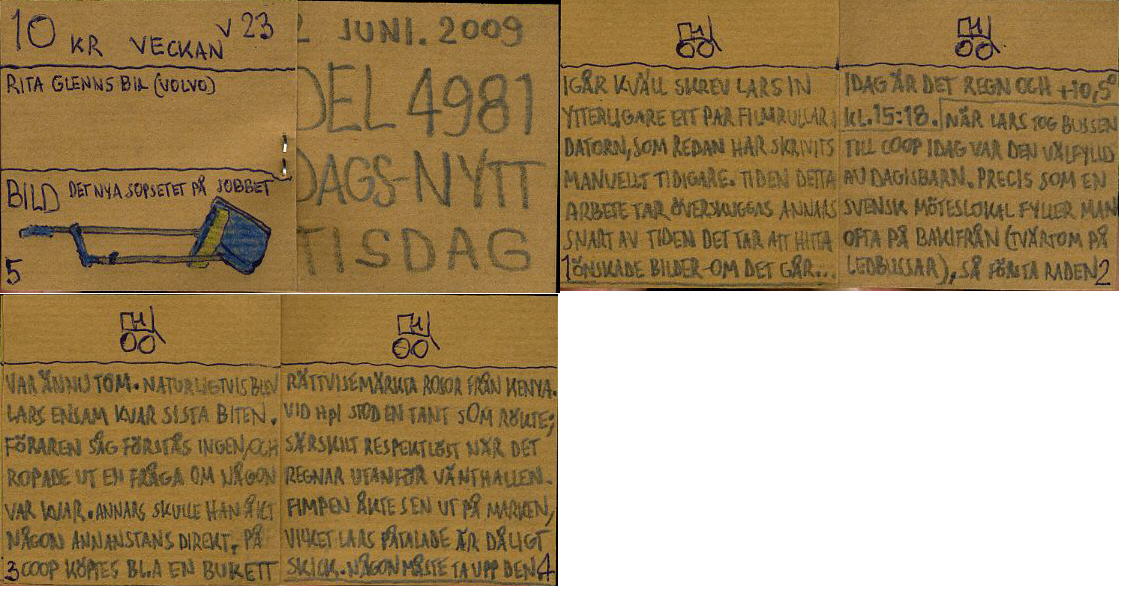 10 KR VECKAN V 23
RITA GLENNS BIL (VOLVO)
BILD DET NYA SOPSETET PÅ JOBBET
5
2 JUNI. 2009
DEL 4981
DAGS-NYTT
TISDAG
IGÅR KVÄLL SKREV LARS IN
YTTERLIGARE ETT PAR FILMRULLAR I
DATORN, SOM REDAN HAR SKRIVITS
MANUELLT TIDIGARE. TIDEN DETTA
ARBETE TAR ÖVERSKUGGAS ANNARS
SNART AV TIDEN DET TAR ATT HITTA
1 ÖNSKADE BILDER-OM DET GÅR...
IDAG ÄR DET REGN OCH +10,5°
KL.15:18. NÄR LARS TOG BUSSEN
TILL COOP IDAG VAR DEN VÄLFYLLD
AV DAGISBARN. PRECIS SOM EN
SVENSK MÖTESLOKAL FYLLER MAN
OFTA PÅ BAKIFRÅN (TVÄRTOM PÅ
LEDBUSSAR), SÅ FÖRSTA RADEN 2
VAR ÄNNU TOM. NATURLIGTVIS BLEV
LARS ENSAM KVAR SISTA BITEN.
FÖRAREN SÅG FÖRSTÅS INGEN, OCH
ROPADE UT EN FRÅGA OM NÅGON
VAR KVAR. ANNARS SKULLE HAN ÅKT
NÅGON ANNANSTANS DIREKT. PÅ
3 COOP KÖPTES BL.A EN BUKETT
RÄTTVISEMÄRKTA ROSOR FRÅN KENYA.
VID Hpl STOD EN TANT SOM RÖKTE;
SÄRSKILT RESPEKTLÖST NÄR DET
REGNAR UTANFÖR VÄNTHALLEN.
FIMPEN ÅKTE SEN UT PÅ MARKEN,
VILKET LARS PÅTALADE ÄR DÅLIGT
SKICK. NÅGON MÅSTE TA UPP DEN 4